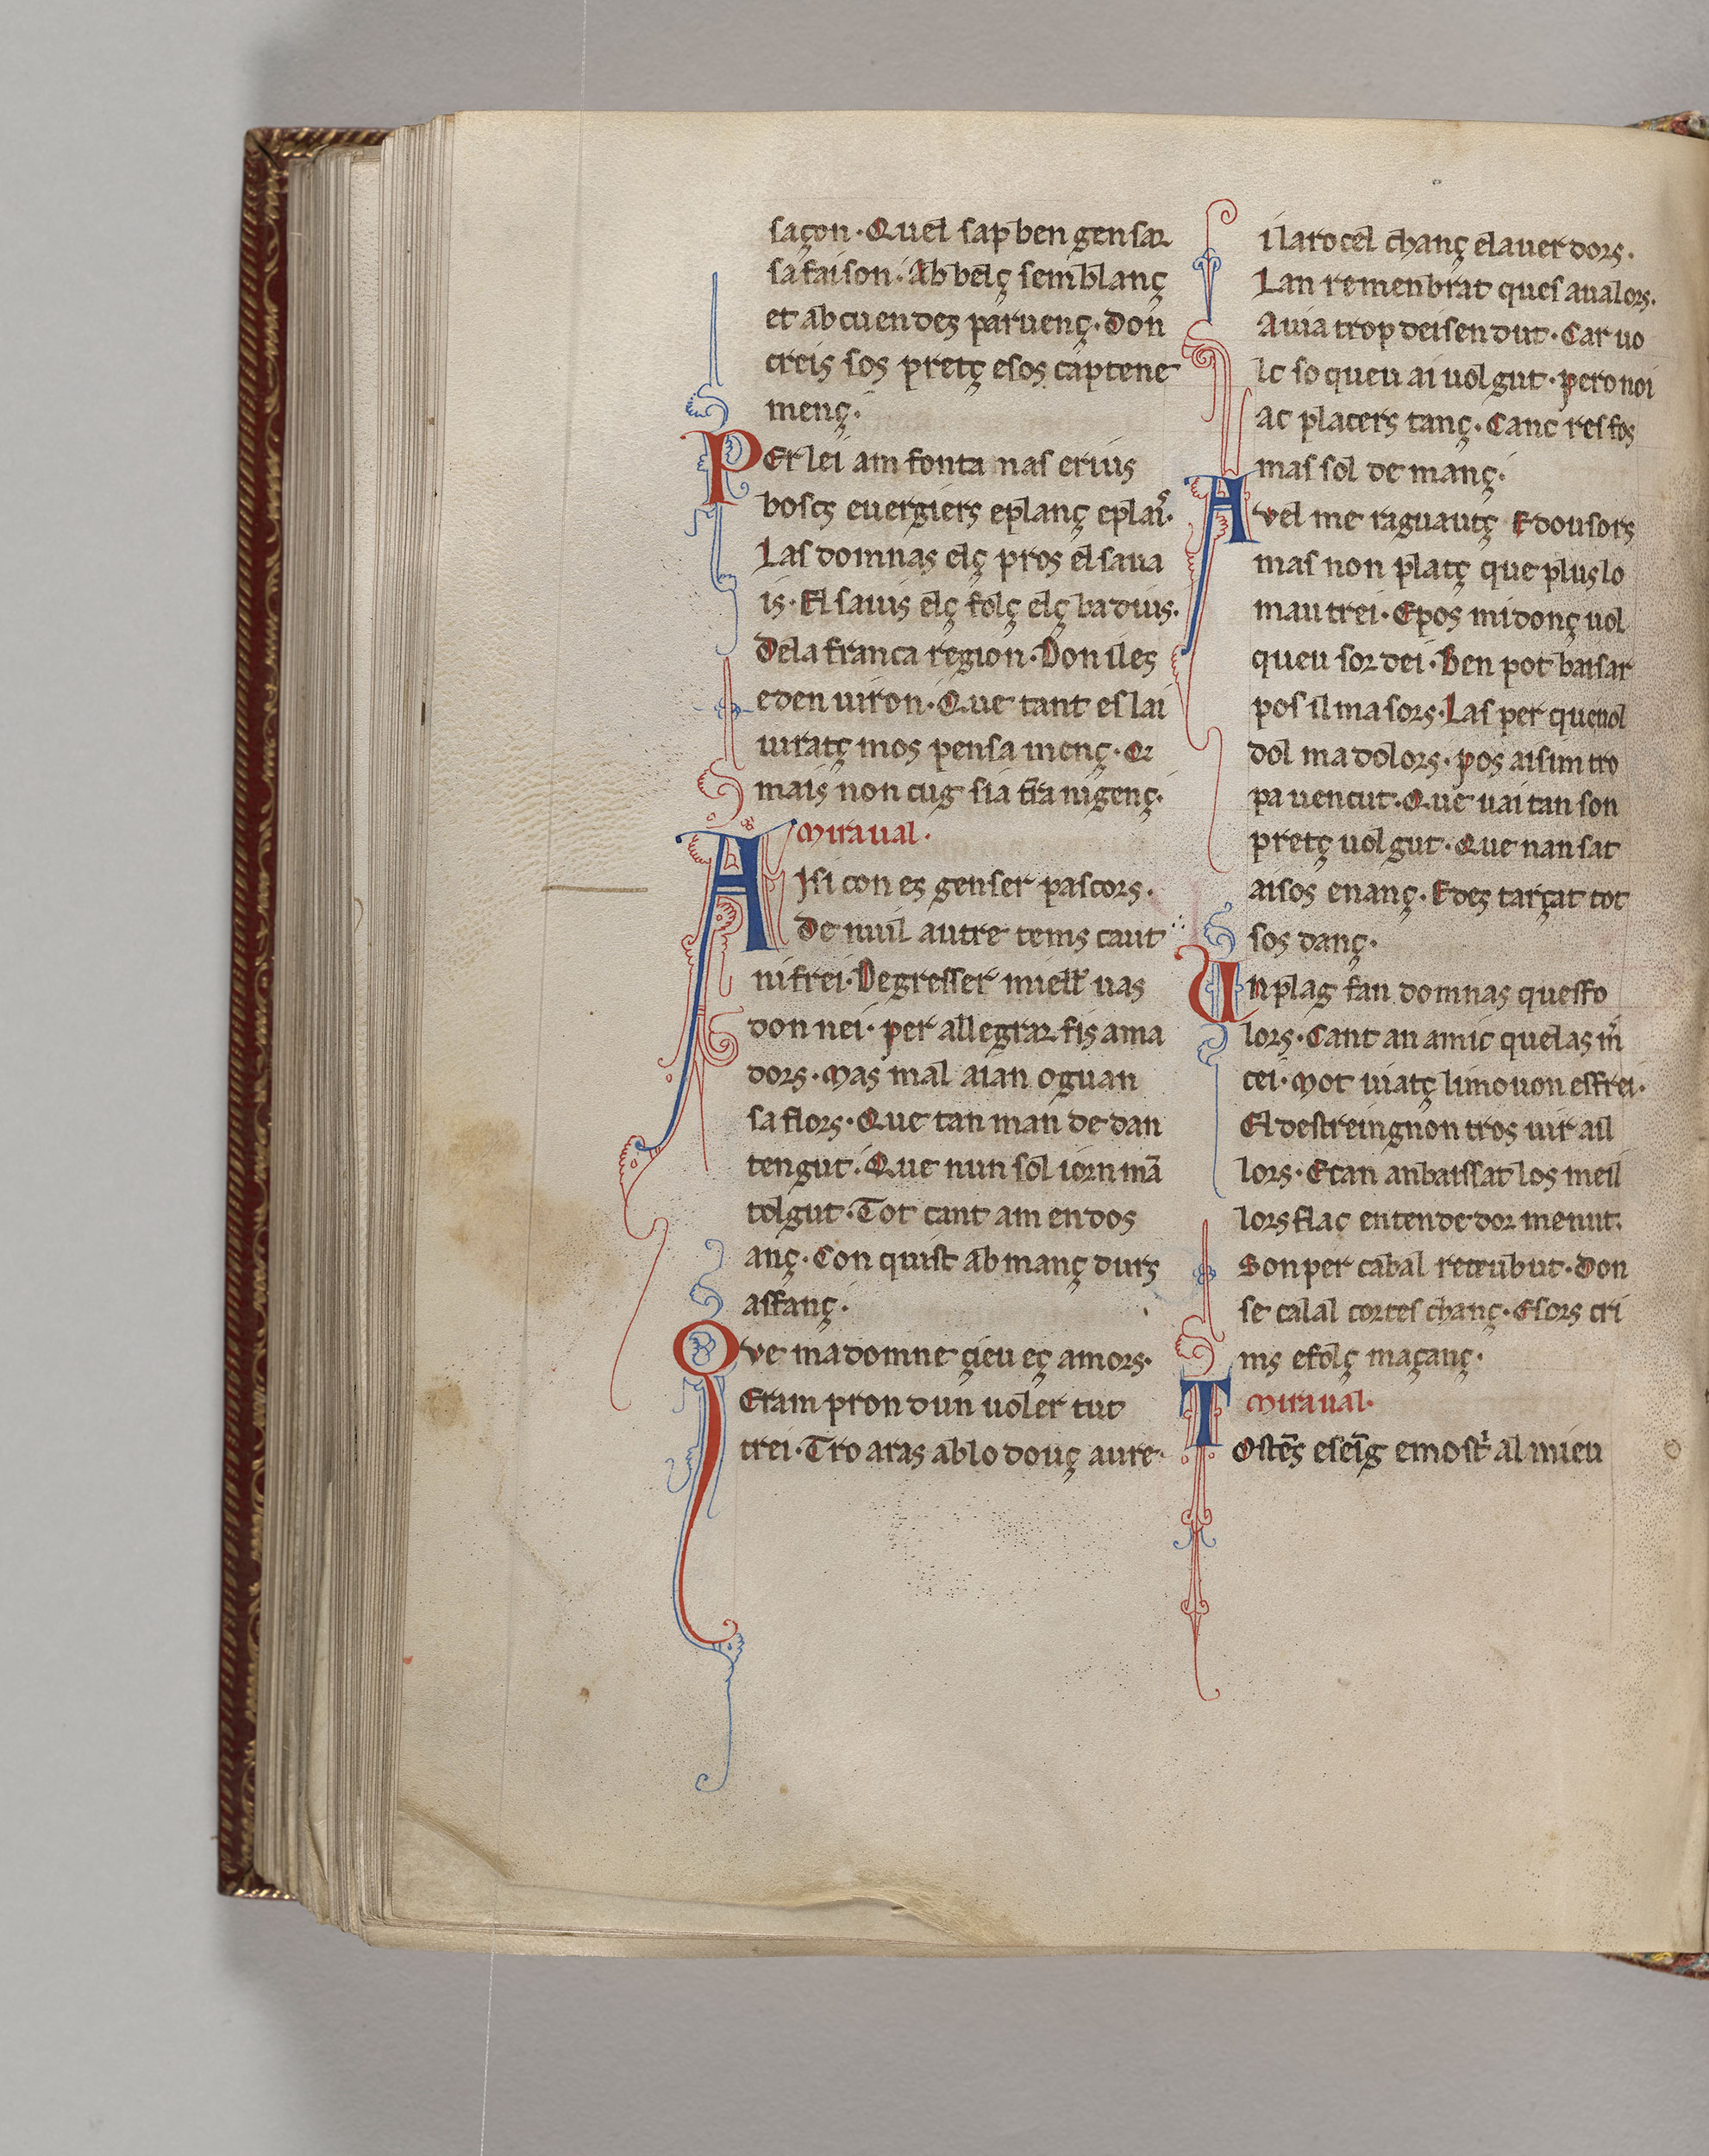 saçon · Quel sap ben gensar
sa faison · Ab belç semblanç
et ab cuendeȝ paruenç · Don
creis sos pretç e sos captene
menç ·
PEr lei am fontanas e rius
boscȝ e uergiers e planç e plaiˢ ·
Las domnas elç pros el saua
is · El sauis elç folç elç badius ·
Dela franca region · Don il eȝ
e den uiron · Que tant es lai
uiratç mos pensamenç · Er
mais non cug sia fra nigenç ·
Miraual ·
AJsi con eȝ genser pascors ·
De nuil autre tems caut
ni frei · Degresser miellˢ uas
donnei · per allegrar fis ama
dors · Mas mal aian oguan
sa flors · Que tan man de dan
tengut · Que nun sol iorn mā
tolgut · Tot cant am en dos
anç · Conquist ab manç durs
affanç ·
Que ma domne çieu eç amors ·
Eram pron dun uoler tut
trei · Tro aras ab lo douç aure ·
il aro cel chanç el auerdors ·
Lan remenbrat que saualors ·
Auia trop deisendut · Car uo
lc so queu ai uolgut · pero noi
ac placers tanç · Canc res fos
mas sol demanç ·
Avel me raguautç E dousors
mas non platç que plus lo
mautrei · E pos midonç uol
queu sordei · Ben pot baisar
pos il ma sors · Las per que nol
dol ma dolors · pos aisim tro
pa uencut · Que uai tan son
pretç uolgut · Que nan sat
aisos enanç · E deȝ tarçat tot
sos danç ·
Un plag fan domnas quesfo
lors · Cant an amic quelas m̄
cei · Mot uiatç li mouon esfrei ·
El destreingnon tros uir ail
lors · E can an baissat los meil
lors flac entendedor menut ·
Son per cabal retenbut · Don
se calal cortes chanç · E sors cri
ms e folç maçanç ·
Miraual ·
TOstēs eseīg e mostˢ al mieu